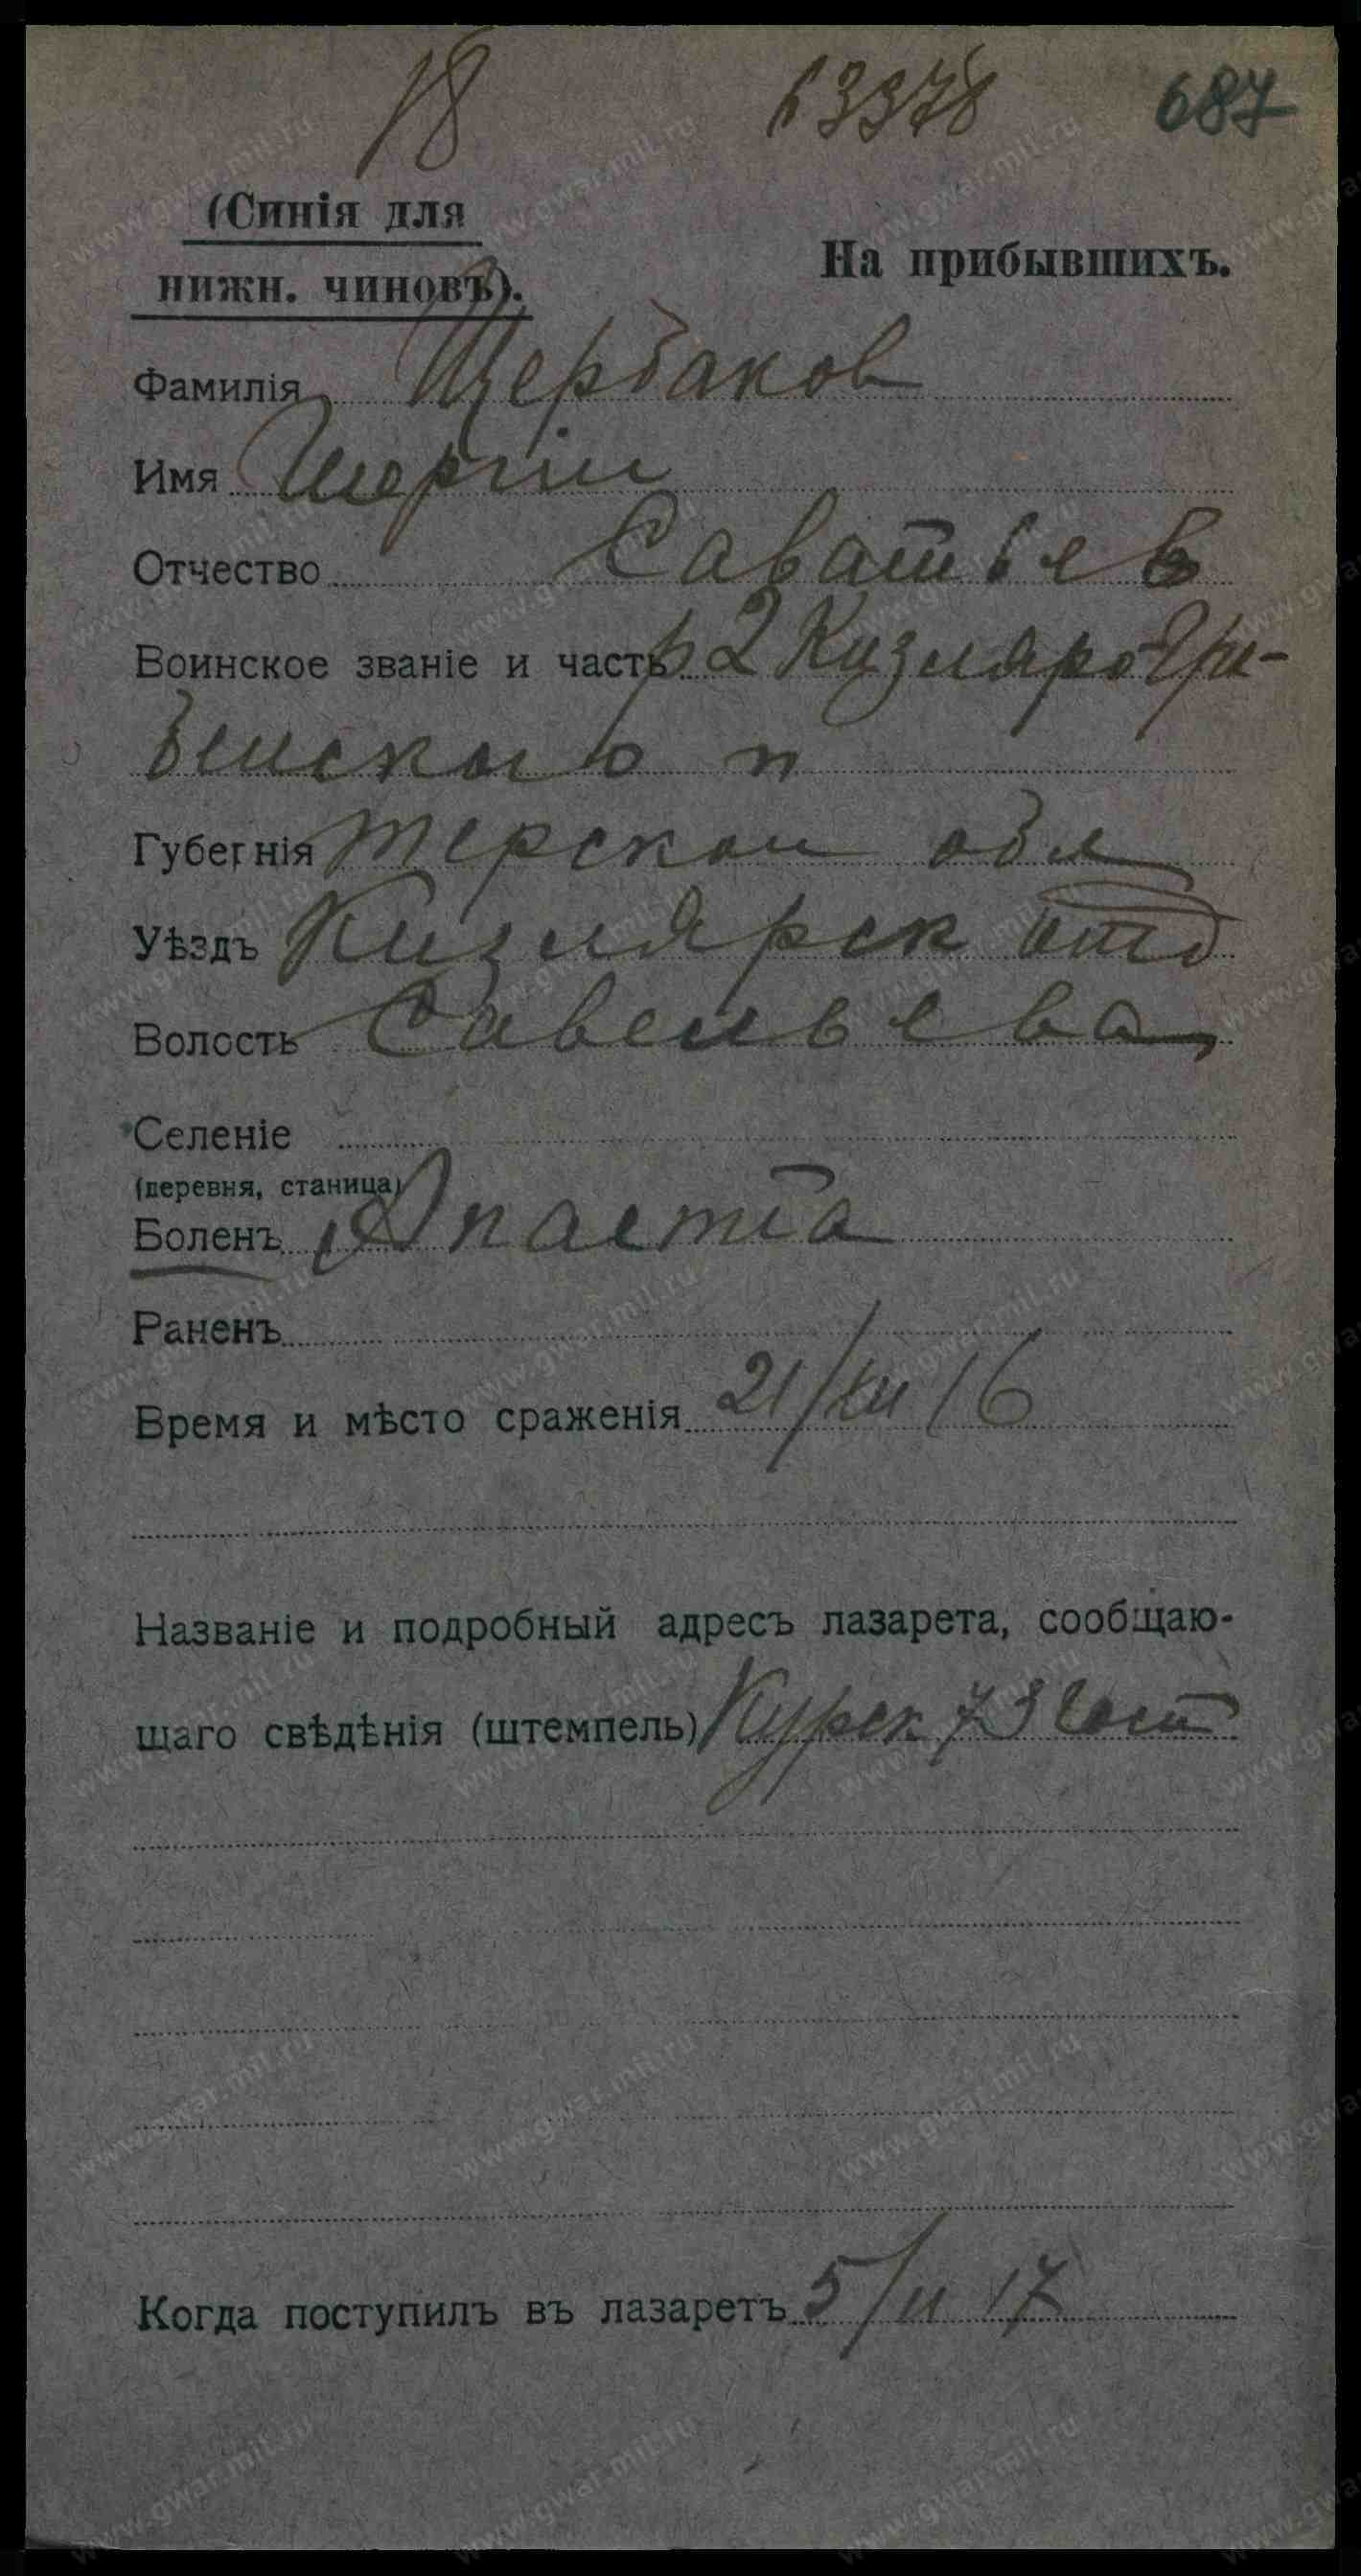 18 63378 687
(Синія для
нижн. чиновъ).
На прибывшихъ.
Фамилія Щербаков
Имя Шоргiи
Отчество Саватьев
Воинское званіе и часть р 2 Кизляро-Гри-
бенского п
Губернія терскои обл
Уѣздъ Кизлярск отд
Волость Савельева
Селеніе
(деревня, станица)
Боленъ
Раненъ
Время и мѣсто сраженія 21/XII 16
Названіе и подробный адресъ лазарета, сообщаю-
щаго свѣдѣнія (штемпель) Курск 73 Госп
Когда поступилъ въ лазаретъ 5/II 17
www.gwar.mil.ru